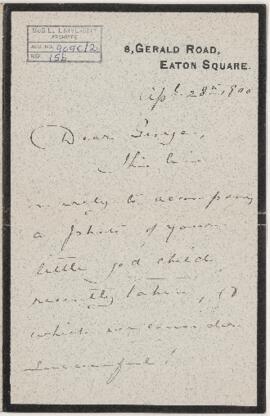 8, GERALD ROAD,
EATON SQUARE.
Sept 28th 1900
Dear George,
This line
merely to accompany
a photo of your
little god child
recently taken, &
which we consider
successful!